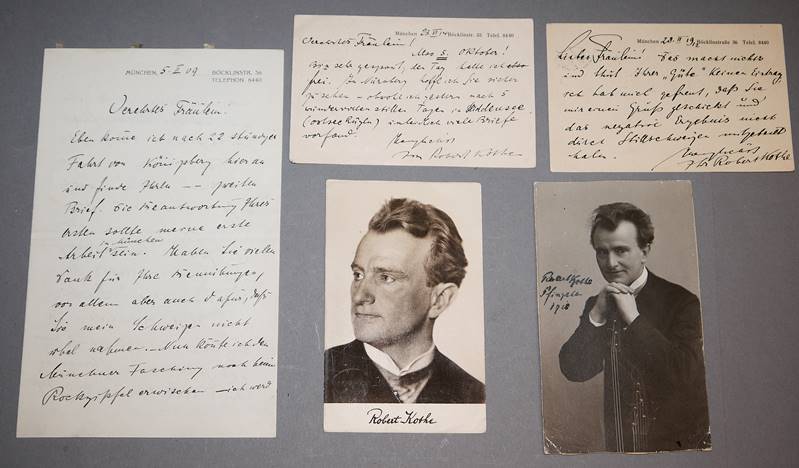 MÜNCHEN, 5-II 09 BÖCKLINSTR. 36
TELEPHON 8440
Verehrtes Fräulein!
Eben komme ich nach 22 stündiger
Fahrt von Königsberg hier an
und finde Ihren -- zweiten
Brief. Die Beantwortung Ihres
ersten sollte meine erste
Arbeit in München sein. Haben Sie vielen
Dank für Ihre Bemühungen,
vor allem aber auch dafür, daß
Sie mein Schweigen nicht
übel nahmen. - Nun könnte ich den
Münchner Fasching noch beim
Rockzipfel erwischen - ich werd
München Böcklinstr. 36 Telef. 8440
Verehrtes Fräulein!
Also 5. Oktober!
der Tag
frei. In Nürnberg hoffe ich Sie sicher
zu sehen - gestern nach 5
wundervollen stillen Tagen in
viele Briefe
vorfand.
Robert Kothe
München Böcklinstraße 36 Telef. 8440
Liebes Fräulein! Das macht nichts
und thut Ihrer "Güte" keinen Eintrag,
ich hab mich gefreut, daß Sie
mir einen Gruß geschickt und
das negative Ergebnis nicht
durch Stillschweigen mitgeteilt
haben.
Ihr Robert Kothe
Robert Kothe
Robert Kothe
Pfingsten
1910